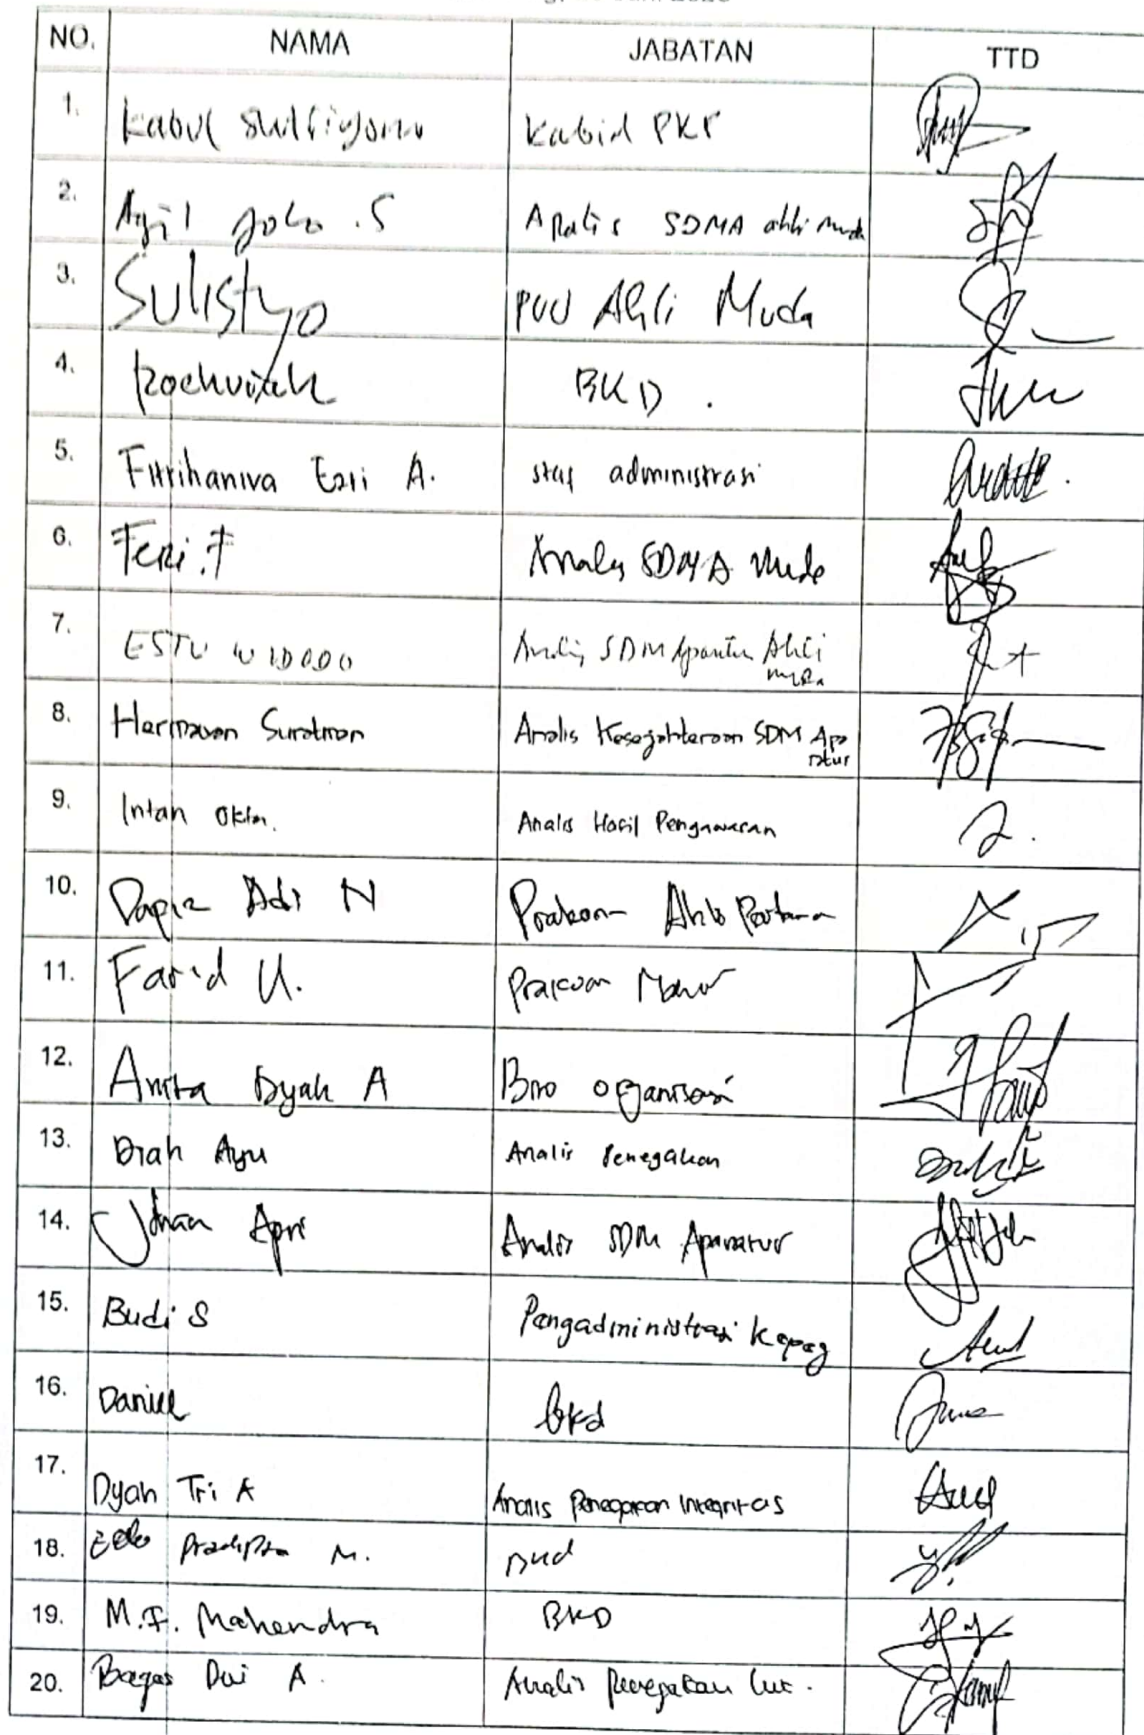 NO. NAMA JABATAN TTD
1. Kabul Kabid PKP
2. Agil Joko .S Analis SDMA ahli muda
3. Sulistyo PUU Ahli Muda
4. BKD .
5. Fitrihaniva Esti A. staf administrasi
6. Feri .F Analis SDMA Muda
7. ESTU WIDODO Analis SDM Aparatur Ahli
muda
8. Hermawan Suratman Analis Kesejahteraan SDM Apa
ratur
9. Intan Okta. Analis Hasil Pengawasan
10. Adi N Prakom Ahli Pertama
11. Farid U. Prakom
12. Anita Dyah A Biro organisasi
13. Diah Ayu Analis Penegakan
14. Apri Analis SDM Aparatur
15. Budi S Pengadministrasi Kepeg
16. Daniel bkd
17. Dyah Tri A Analis Penegakan Integritas
18. Edo Pradipta M. BKD
19. M.F. Mahendra BKD
20. Bagas Dwi A. Analis Penegakan